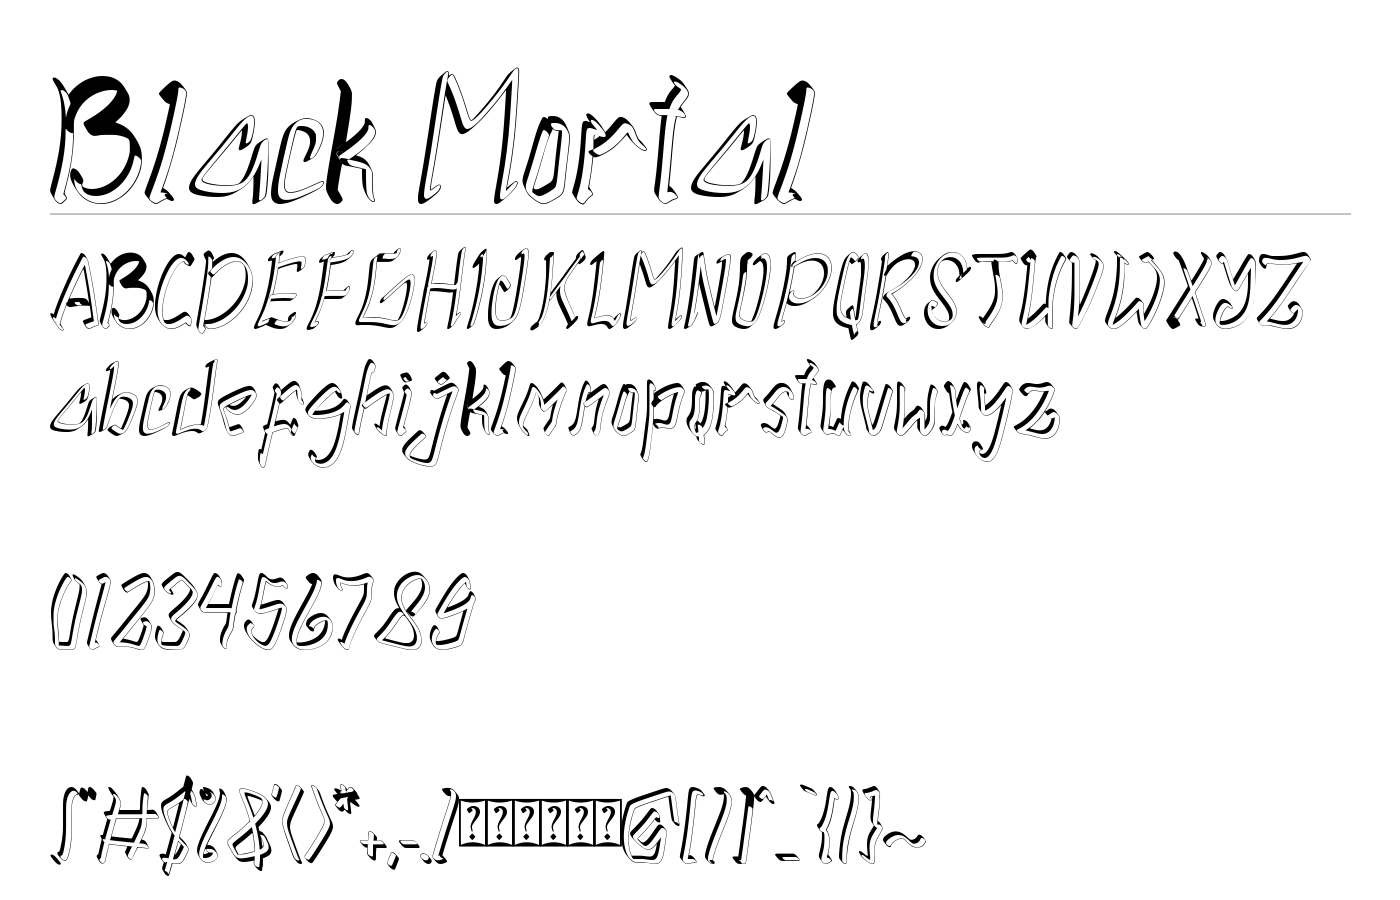 Black Mortal
ABCDEFGHIJKLMNOPQRSTUVWXYZ
abcdefghijklmnopqrstuvwxyz
0123456789
!"#$%&'()*+,-./??????@[\]^_`{|}~